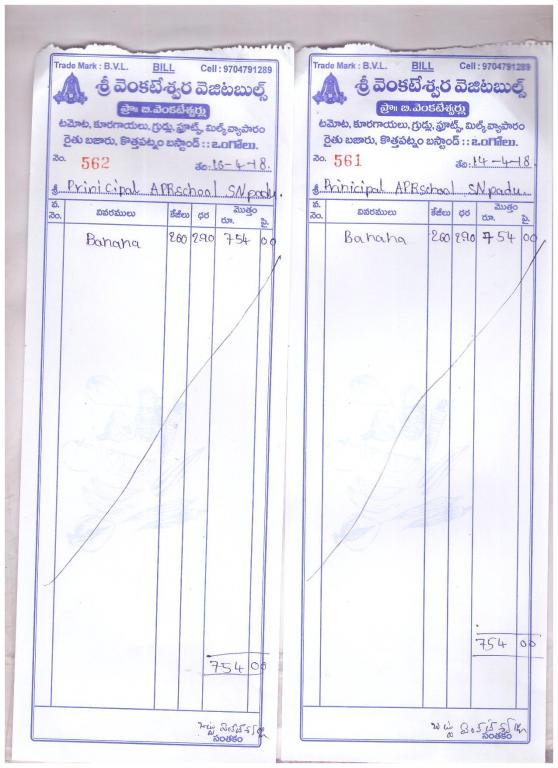 Trade Mark : B.V.L. BILL Cell : 9704791289
శ్రీ వెంకటేశ్వర వెజిటబుల్స్
ప్రొ॥ బి.వెంకటేశ్వర్లు
టమోట, కూరగాయలు, గ్రుడ్లు, ఫ్రూట్స్, మిల్క్ వ్యాపారం
రైతు బజారు, కొత్తపట్నం బస్టాండ్ :: ఒంగోలు.
నెం. 562 తేది : 15-4-18.
శ్రీ Prinicipal APRschool SNpadu.
వ. నెం. వివరములు కేజీలు ధర మొత్తం రూ. పై.
Banana 260 290 754 00
754 00
సంతకం
Trade Mark : B.V.L. BILL Cell : 9704791289
శ్రీ వెంకటేశ్వర వెజిటబుల్స్
ప్రొ॥ బి.వెంకటేశ్వర్లు
టమోట, కూరగాయలు, గ్రుడ్లు, ఫ్రూట్స్, మిల్క్ వ్యాపారం
రైతు బజారు, కొత్తపట్నం బస్టాండ్ :: ఒంగోలు.
నెం. 561 తేది : 14-4-18.
శ్రీ Prinicipal APRschool SNpadu.
వ. నెం. వివరములు కేజీలు ధర మొత్తం రూ. పై.
Banana 260 290 754 00
754 00
సంతకం